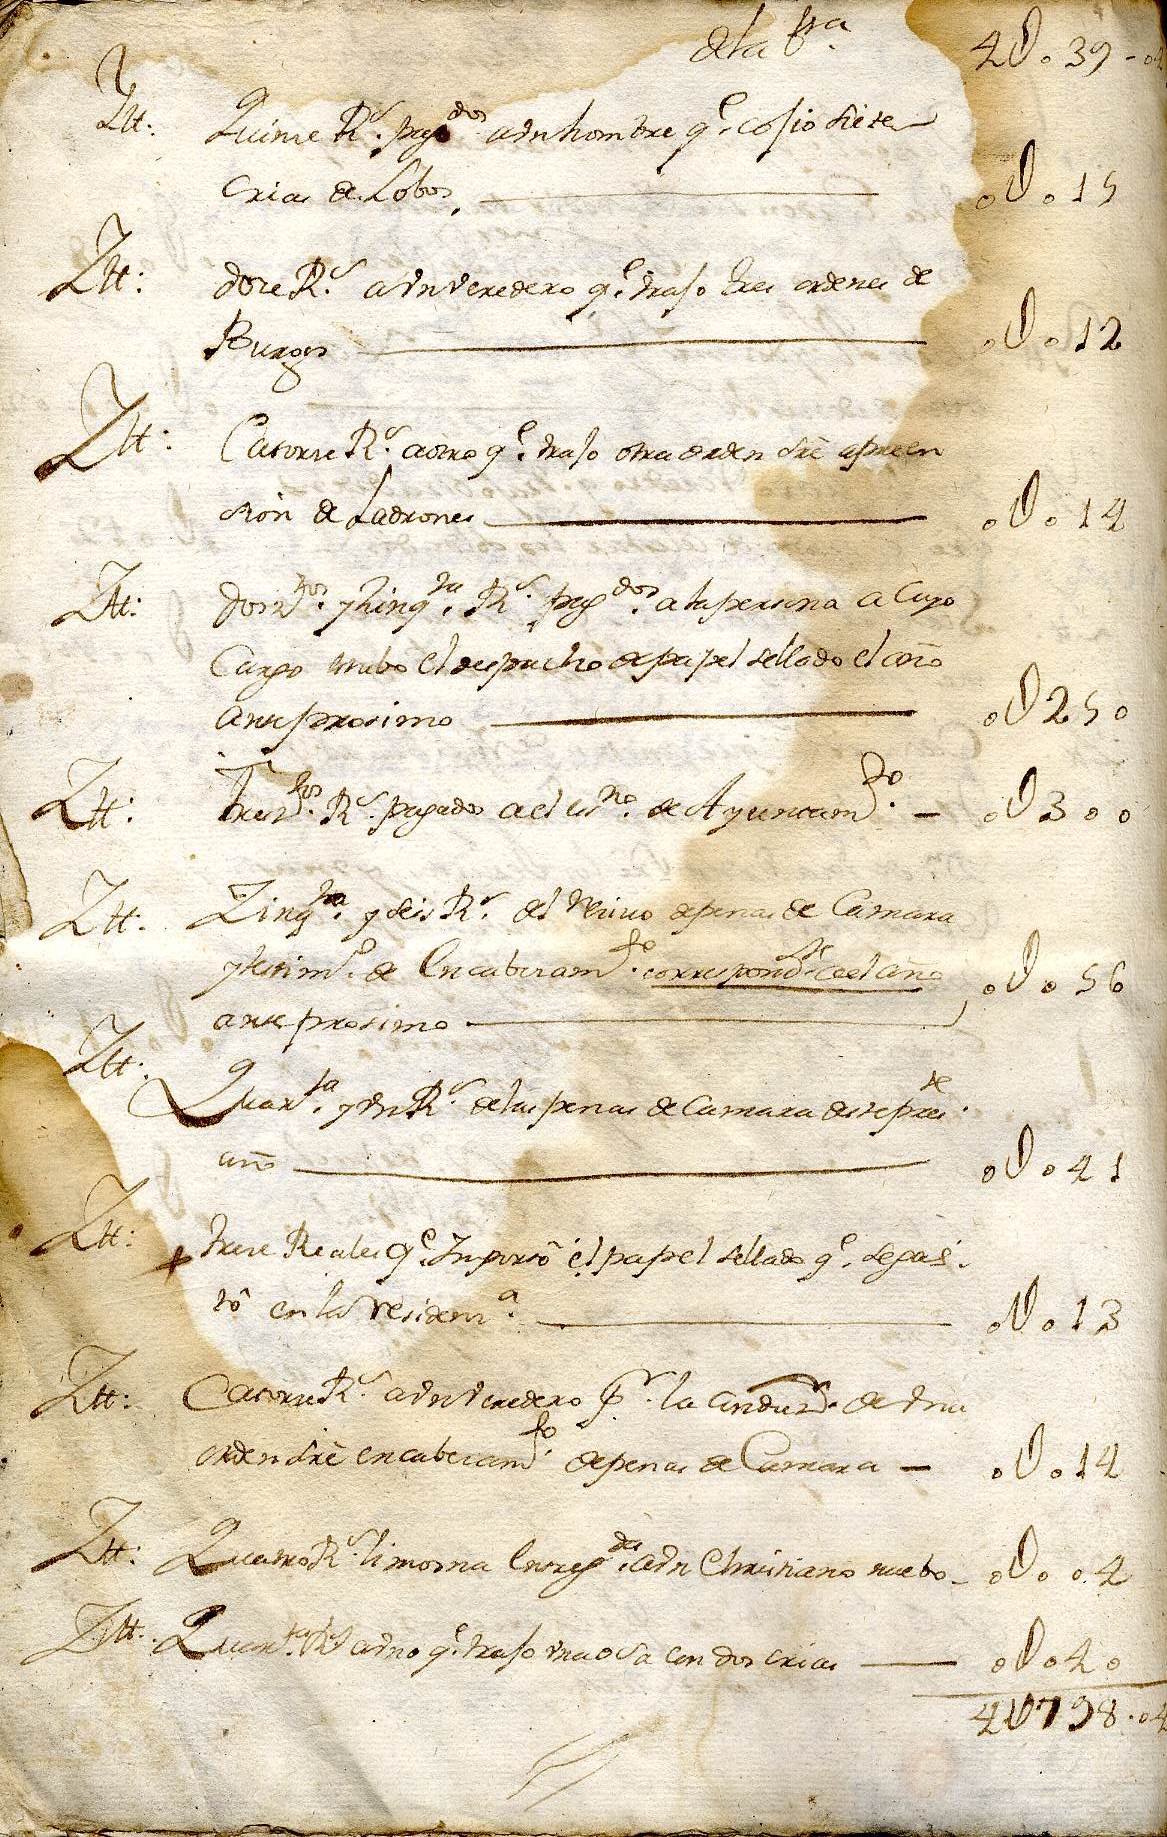 de la fra 4U039-04
Itt: Quinse Rs. pagdos a un hombre qe. cosio siete
crias de Lobos, 0U015
Itt: dose Rs. a un veredero qe. traso tres ordenes de
Burgos 0U012
Itt: Catorse Rs. a otro qe. traso otra orden sre apreen
sion de Ladrones 0U014
Itt: Dosztos. y zinqta. Rs. pagdos. a la persona a cuyo
Cargo estubo el despacho de papel sellado el año
anteprosimo 0U250
Itt: tresztos. Rs. pagados a el esno. de Ayuntamto. 0U300
Itt: Zinqta. y seis Rs. del rediuo de penas de Camara
y testimo. de encabezamto. correspondte. a el año
anteprosimo 0U056
Itt: Quarta. y un Rs. de las penas de Camara de este preste.
año 0U041
Itt: trese Reales qe. Importó el papel sellado qe. se gas-
tó en la residenza. 0U013
Itt: Catorse Rs. a un veredero pr. la conduzn. de una
orden sre encabezamto. de penas de Camara 0U014
Itt: Quatro Rs. limosna entregda. a un Christiano nuebo 0U004
Itt: Quarta. Rs. a uno qe. traso una osa con dos crias 0U040
4U798-04